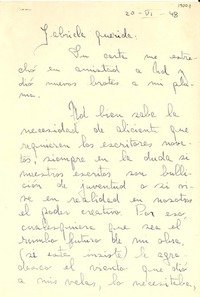 20 - VI - 48
Gabriela querida:
Su carta me estre-
chó en amistad a Ud y
dió nuevos brotes a mi plu-
ma.
Ud bien sabe la
necesidad de aliciente que
requieren los escritores nova-
tos, siempre en la duda si
nuestros escritos son bulli-
ción de juventud o si vi-
ve en realidad en nosotros
el poder creativo. Por eso,
cualesquiera que sea el
rumbo futuro de mi obra,
(se estas insiste) le agra-
dezco el viento que dió
a mis velas, lo necesitaba,